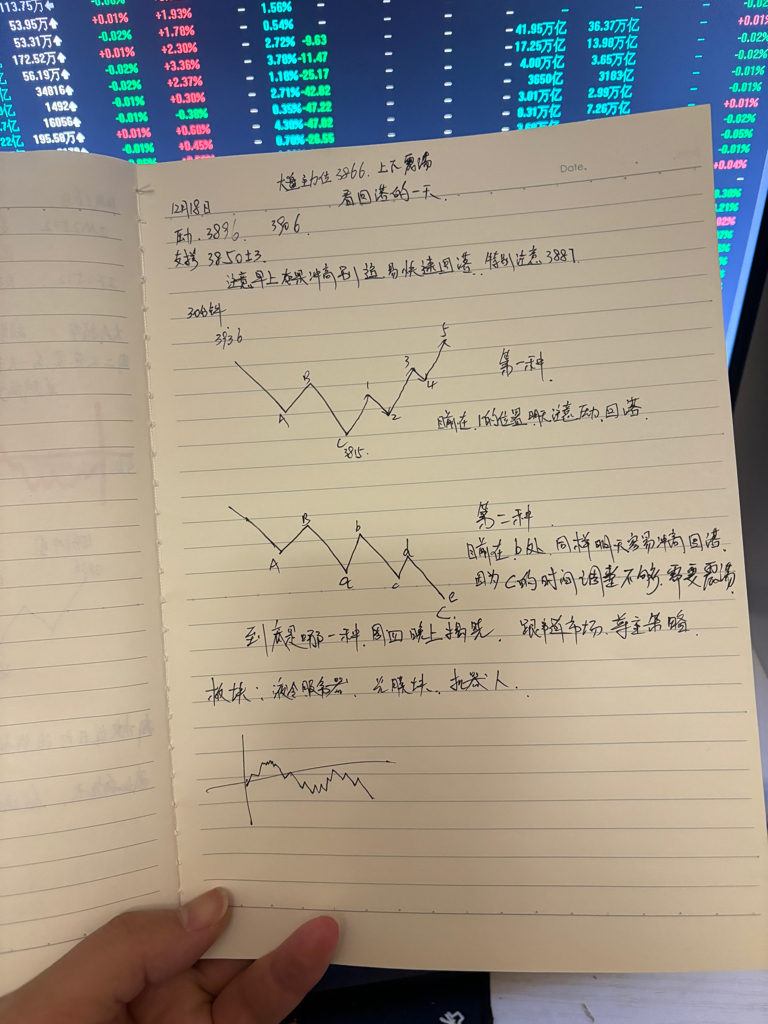 113.75万 -0.06% 1.56%
53.95万 +0.01% +1.93% 0.54%
53.31万 -0.02% +1.70% 2.72% -9.63 41.95万亿 36.37万亿
172.52万 +0.01% +2.30% 3.70% -11.47 17.25万亿 13.90万亿
56.19万 -0.02% +3.36% 1.10% -25.17 4.00万亿 3.65万亿
34816 -0.01% +2.37% 2.71% -42.02 3650亿 3103亿
1492 -0.01% +0.30% 0.35% -47.22 3.01万亿 2.99万亿
16056 +0.01% -0.30% 4.30% -47.02 8.31万亿 7.26万亿
195.50万 -0.01% +0.60% 0.70% -26.55
+0.45%
Date.
大盘主力位3866.上下震荡
12月18日 看回落的一天.
压力.3896 3906
支撑 3850±3.
注意早上如果冲高别追易快速回落.特别注意3887
30分钟
3936
A B C 1 2 3 4 5
3815.
第一种.
目前在1的位置明天注意压力.回落.
A B a b c d e C
第二种.
目前在b处.同样明天容易冲高回落.
因为C的时间调整不够.需要震荡.
到底是哪一种.周四晚上揭晓. 跟随市场.尊重策略.
板块:液冷服务器.光模块.机器人.